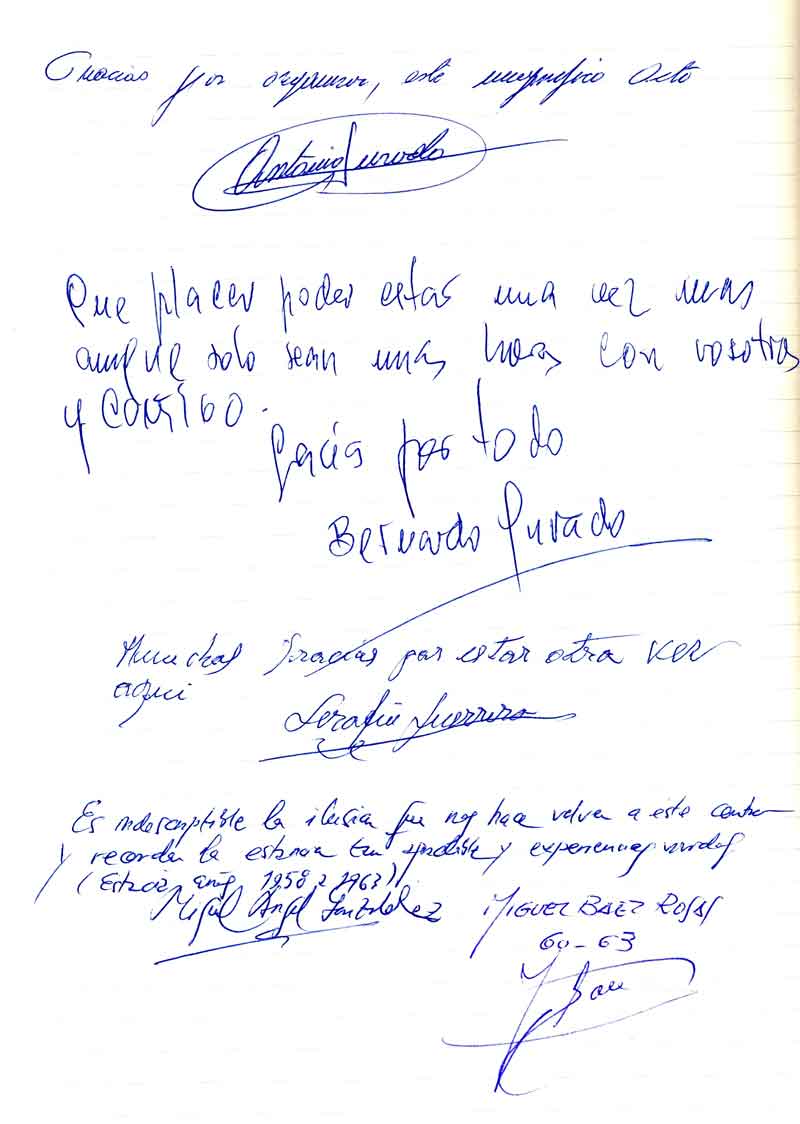 Gracias por organizar, este magnifico Acto
Antonio Jurado
Que placer poder estar una vez mas
aunque solo sean unas horas con vosotros
y CONTIGO.
Gracias por todo
Bernardo Jurado
Munchas Gracias por estar otra vez
aqui
Serafin Guerrero
Es indescriptible la ilusion que nos hace volver a este centro
y recordar la estancia tan y experiencias vividas
(Estancia años 1958 a 1963)
Miguel Angel MIGUEL BAEZ ROJAS
60-63
Baez